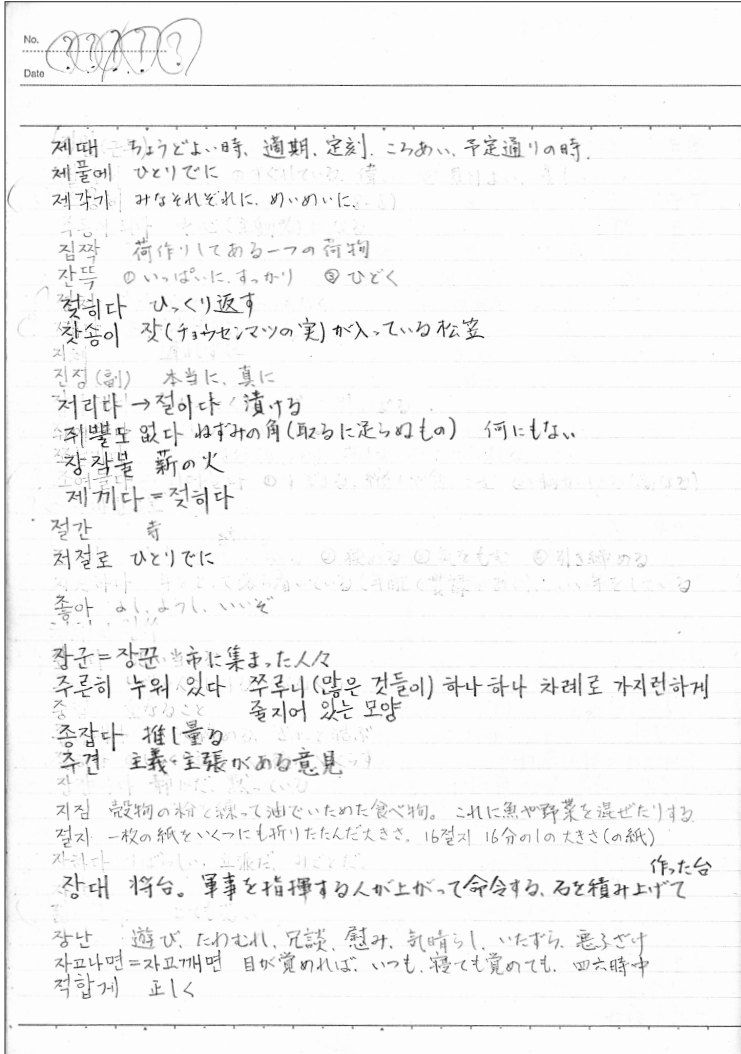 No. ? ? ? ? ?
Date
제때 ちょうどよい時、適期、定刻、ころあい、予定通りの時.
제풀에 ひとりでに
제각기 みなそれぞれに、めいめいに
짐짝 荷作りしてある一つの荷物
잔뜩 ①いっぱいに、すっかり ②ひどく
젖히다 ひっくり返す
잣송이 잣(チョウセンマツの実)が入っている松笠
진정(副) 本当に、真に
저리다 → 절이다 漬ける
쥐뿔도 없다 ねずみの角(取るに足らぬもの) 何にもない
장작불 薪の火
제끼다=젖히다
절간 寺
저절로 ひとりでに
좋아 よし、ようし、いいぞ
장군=장꾼 市に集まった人々
주른히 누워 있다 쭈루니(많은 것들이) 하나하나 차례로 가지런하게
줄지어 있는 모양
종잡다 推し量る
주견 主義・主張がある意見
지짐 穀物の粉を練って油でいためた食べ物。これに魚や野菜を混ぜたりする
절지 一枚の紙をいくつにも折りたたんだ大きさ、16절지 16分の1の大きさ(の紙)
장대 将台。軍事を指揮する人が上がって命令する、石を積み上げて
作った台
장난 遊び、たわむれ、冗談、慰み、気晴らし、いたずら、悪ふざけ
자고나면=자고깨면 目が覚めれば、いつも、寝ても覚めても、四六時中
적합게 正しく